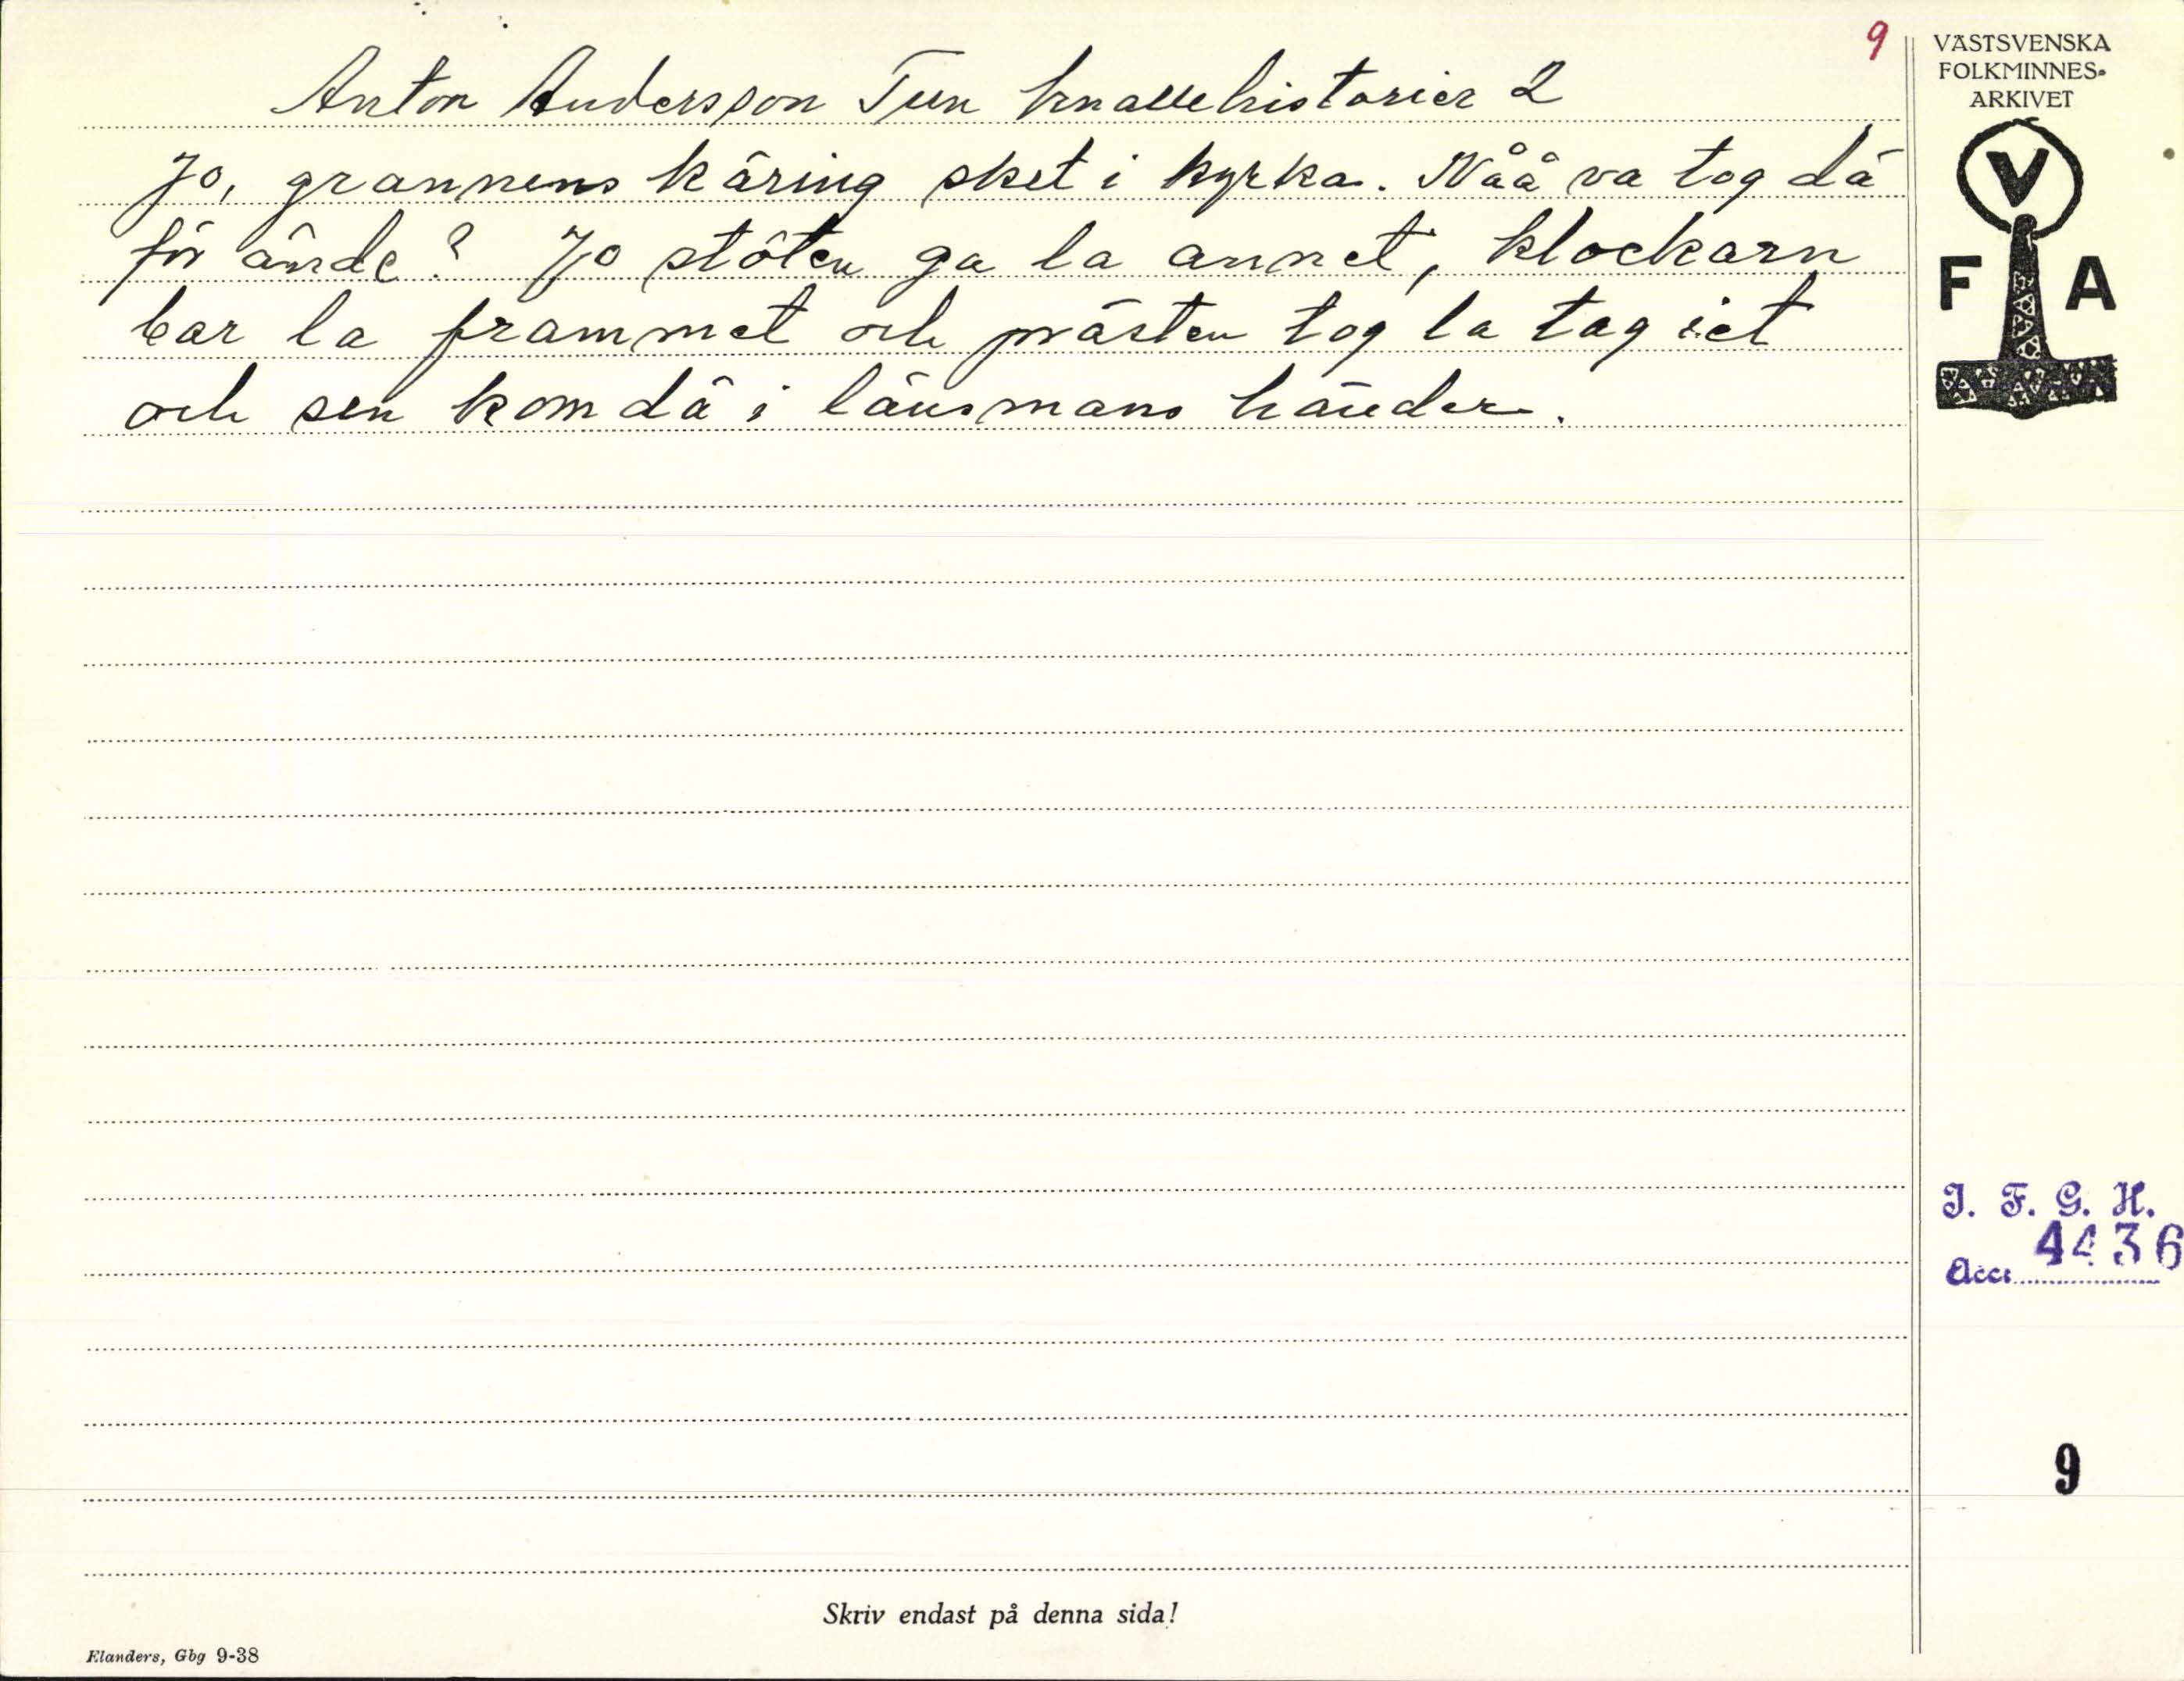 9
Anton Andersson Tun knallehistorier 2
Jo, grannens käring sket i kyrka. Nåå va tog dä
för ände? Jo stöten ga la annet, klockarn
bar la frammet och prästen tog la tag iet
och sen kom dä i länsmans händer.
VÄSTSVENSKA
FOLKMINNES-
ARKIVET
V
F A
I. F. G. H.
Acc. 4436
9
Skriv endast på denna sida!
Elanders, Gbg 9-38